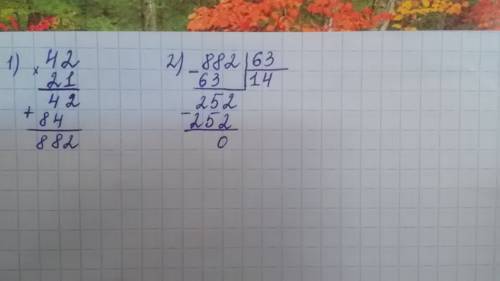 1) × 42
21
+ 42
84
882
2) - 882 | 63
63 14
252
- 252
0